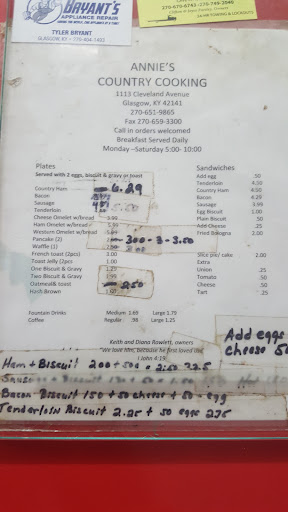 BRYANT'S
APPLIANCE REPAIR
TYLER BRYANT
24 HR TOWING & LOCKOUTS
ANNIE'S
COUNTRY COOKING
1113 Cleveland Avenue
Glasgow, KY 42141
270-651-9865
Fax 270-659-3300
Call in orders welcomed
Breakfast Served Daily
Monday –Saturday 5:00- 10:00
Plates
Served with 2 eggs, biscuit & gravy or toast
Country Ham 6.29
Bacon
Sausage
Tenderloin
Cheese Omelet w/bread 3.99
Ham Omelet w/bread
Western Omelet w/bread
Pancake (2) 300-3-3.50
Waffle (1)
French toast (2pcs) 3.00
Toast Jelly (2pcs 1.00
One Biscuit & Gravy 1.29
Two Biscuit & Gravy 1.99
Oatmeal& toast 250
Hash Brown 1.00
Sandwiches
Add egg .50
Tenderloin 4.50
Country Ham 4.50
Bacon 4.29
Sausage 3.99
Egg Biscuit 1.00
Plain Biscuit .50
Add Cheese .25
Fried Bologna 3.00
Slice pie/ cake 2.00
Extra
Union .25
Tomato .50
Cheese .50
Tart .25
Fountain Drinks Medium 1.69 Large 1.79
Coffee Regular .98 Large 1.25
Keith and Diana Rowlett, owners
"We love him, because he first loved us"
I John 4:19
Add eggs
cheese 50
Ham + Biscuit 200+50¢ = 2:50 225
Bacon Biscuit 150 + 50 cheese + 50 - egg
Tenderloin Biscuit 2.25 + 50 eggs 275